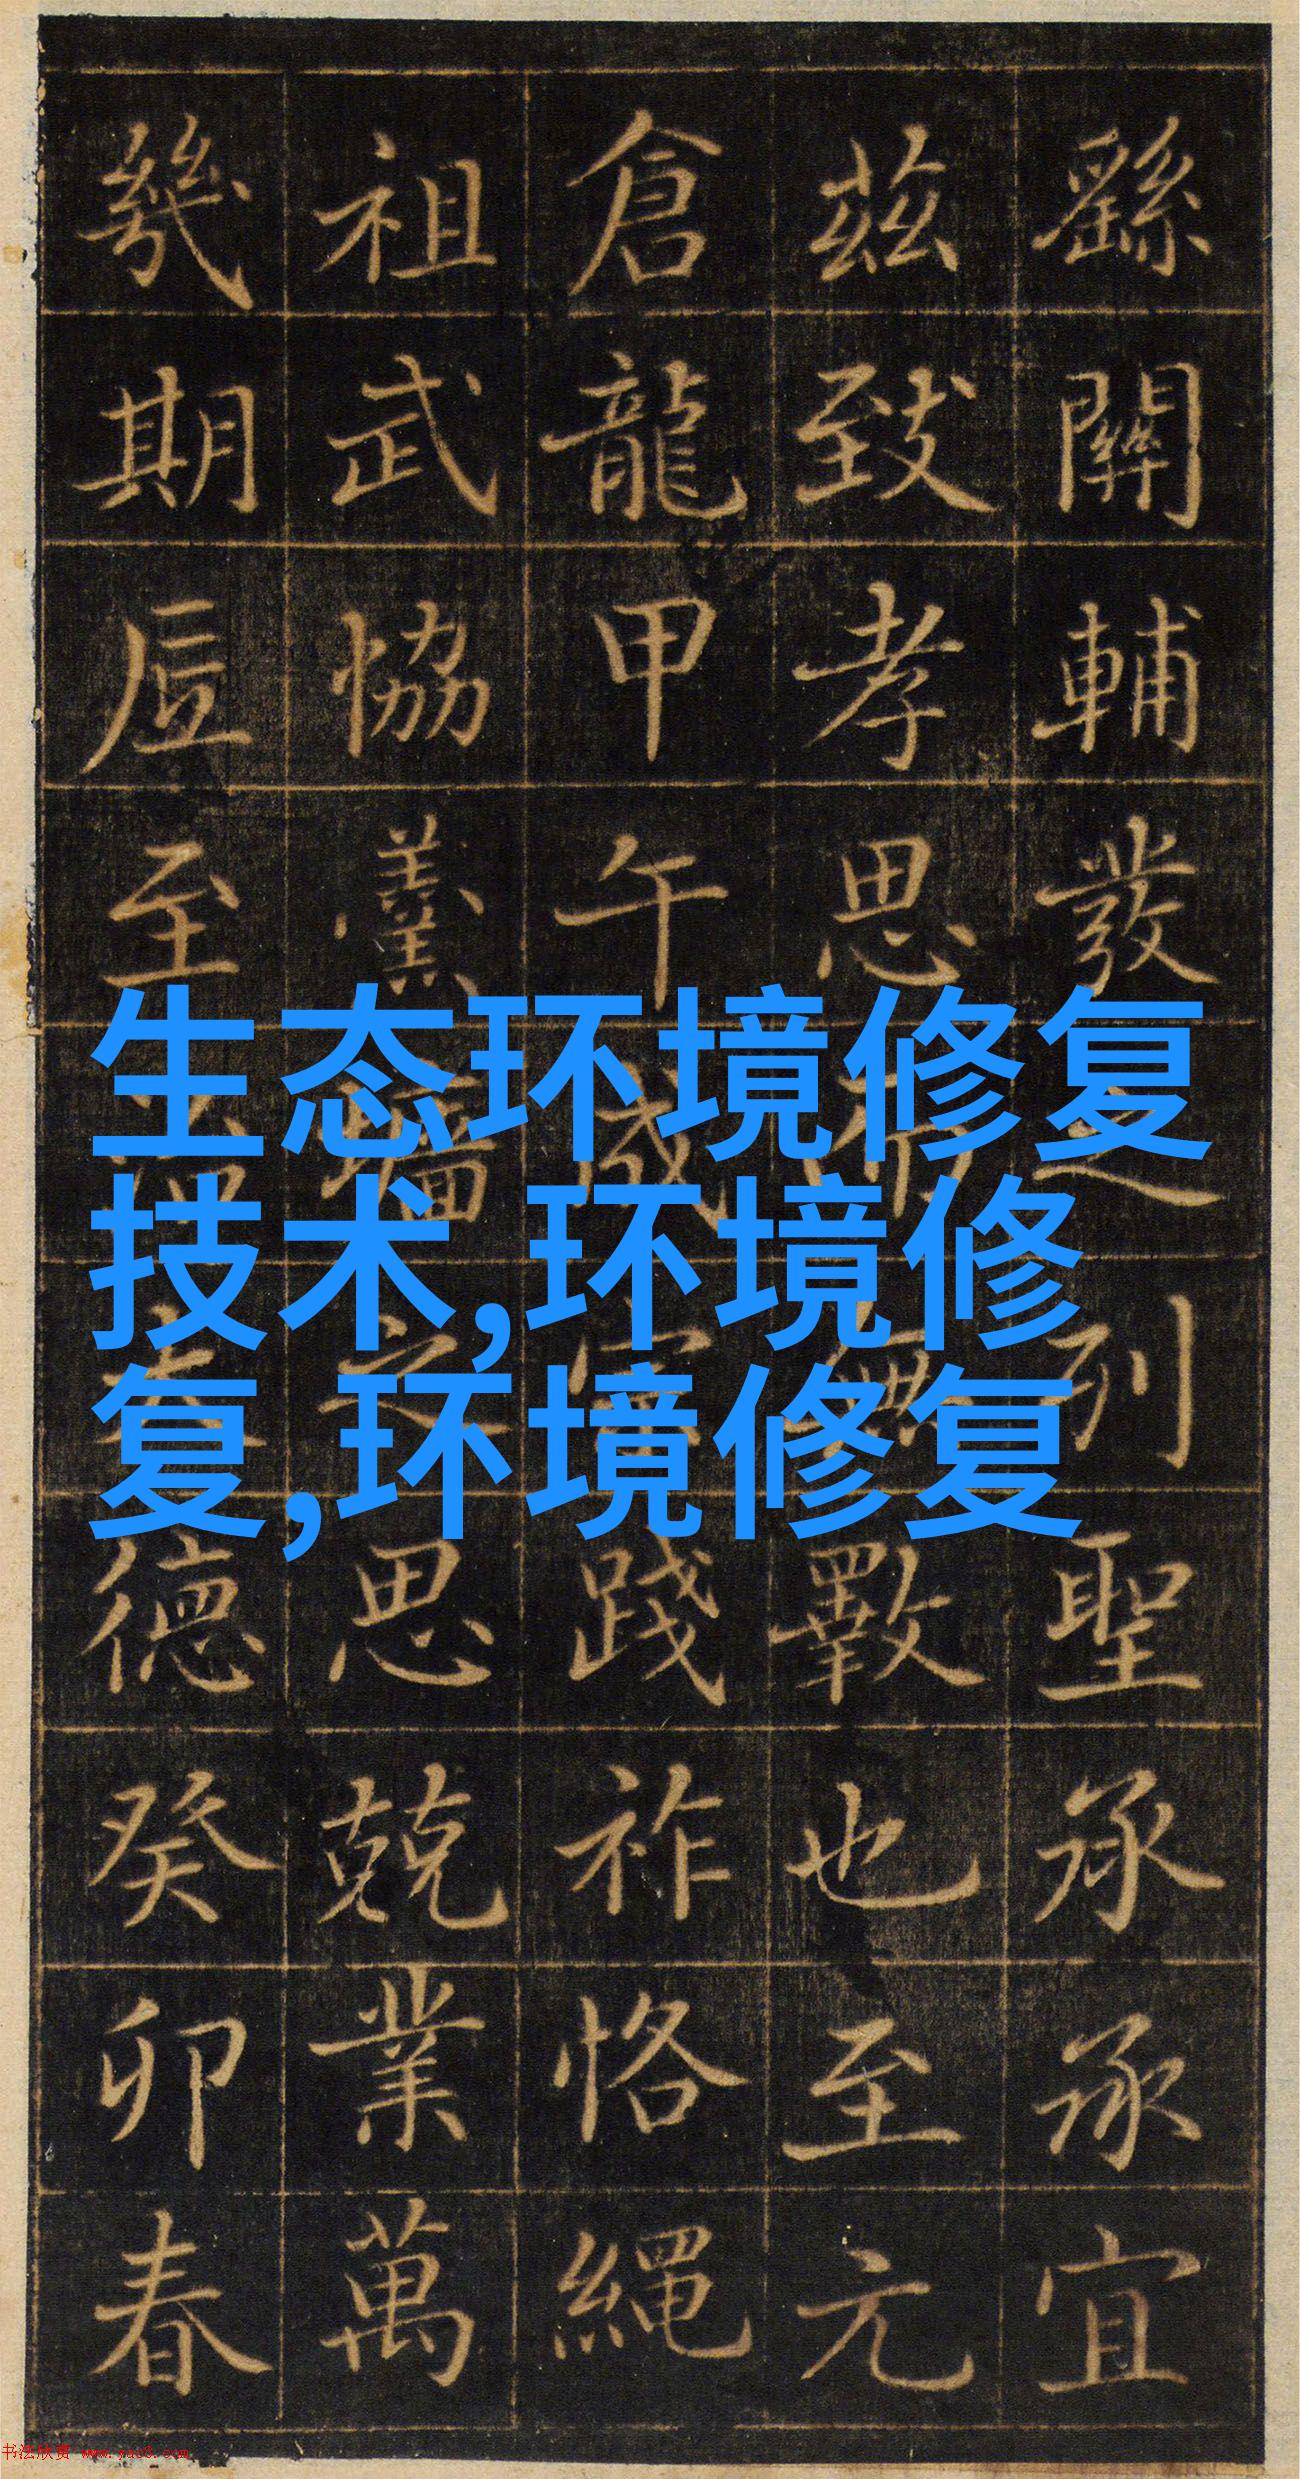 生态环境修复
技术,环境修
复,环境修复
繇關輔發之列聖承承宜
茲致孝思而無斁也至元
倉龍甲午成宗踐祚恪繩
祖武協羹墻之思兢業萬
幾期至治大德癸卯春
书法欣赏 www.yac8.com